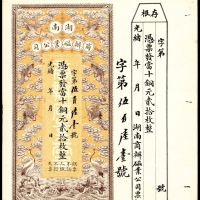 湖南
商辦鑛業公司
字第伍百陸壹號
憑票發當十銅元貳拾枚整
光緒 年 月 日
字第伍百陸壹號
存根
字第
憑票發當十銅元貳拾枚整
光緒 年 月 日湖南商辦鑛業公司票